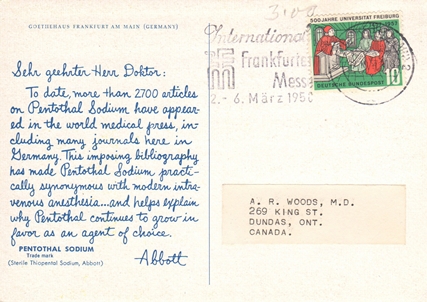 GOETHEHAUS FRANKFURT AM MAIN (GERMANY)
Sehr geehrter Herr Doktor:
To date, more than 2700 articles
on Pentothal Sodium have appear-
ed in the world medical press, in-
cluding many journals here in
Germany. This imposing bibliography
has made Pentothal Sodium practi-
cally synonymous with modern intra-
venous anesthesia...and helps explain
why Pentothal continues to grow in
favor as an agent of choice.
PENTOTHAL SODIUM
Trade mark
(Sterile Thiopental Sodium, Abbott)
Abbott
Internationale
Frankfurter
Messe
2.-6. März 1958
500 JAHRE UNIVERSITÄT FREIBURG
1957
DEUTSCHE BUNDESPOST
10
A. R. WOODS, M.D.
269 KING ST.
DUNDAS, ONT.
CANADA.